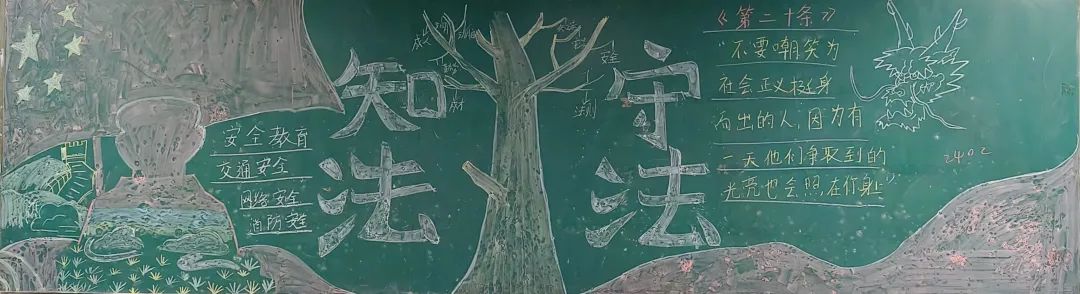 知法
守法
安全教育
交通安全
网络安全
消防安全
安全
法则
《第二十条》
"不要嘲笑为
社会正义挺身
而出的人,因为有
一天他们争取到的
光亮也会照在你身上"
2402